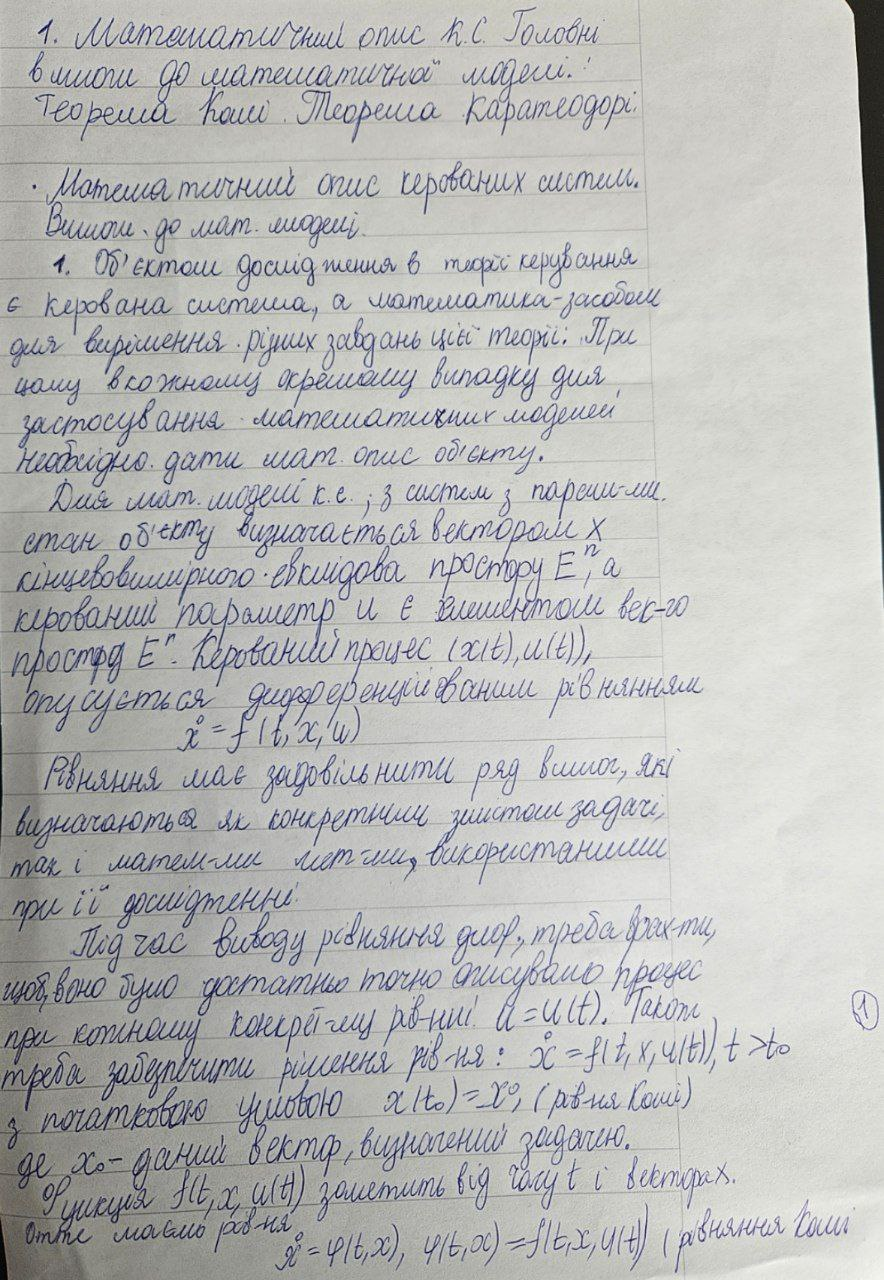 1. Математичний опис К.С. Головні
вимоги до математичної моделі.
Теорема Коші. Теорема Каратеодорі.
· Математичний опис керованих систем.
Вимоги до мат. моделі.
1. Об'єктом дослідження в теорії керування
є керована система, а математика-засобом
для вирішення різних завдань цієї теорії. При
цьому в кожному окремому випадку для
застосування математичних моделей
необхідно дати мат. опис об'єкту.
Для мат. моделі к.с., з систем з парам-ми.
стан об'єкту визначається вектором x
кінцевовимірного евклідова простору Eⁿ, а
керований параметр u є елементом век-го
простору Eʳ. Керований процес (x(t), u(t)),
опусується диференційованим рівнянням
ẋ = f(t, x, u)
Рівняння має задовільнити ряд вимог, які
визначаються як конкретним змістом задачі,
так і матем-ми мет-ми, використаними
при її дослідженні.
Під час виводу рівняння диф., треба врах-ти,
щоб, воно було достатньо точно описувало процес
при кожному конкрет-му рів-нні u = u(t). Також
треба забезпечити рішення рів-ня: ẋ = f(t, x, u(t)), t > t₀
з початковою умовою x(t₀) = x₀, (рів-ня Коші)
де x₀ - даний вектор, визначений задачею.
Функція f(t, x, u(t)) залежить від часу t і вектора x.
Отже маємо рів-ня
ẋ = φ(t, x), φ(t, x) = f(t, x, u(t)) (рівняння Коші
1